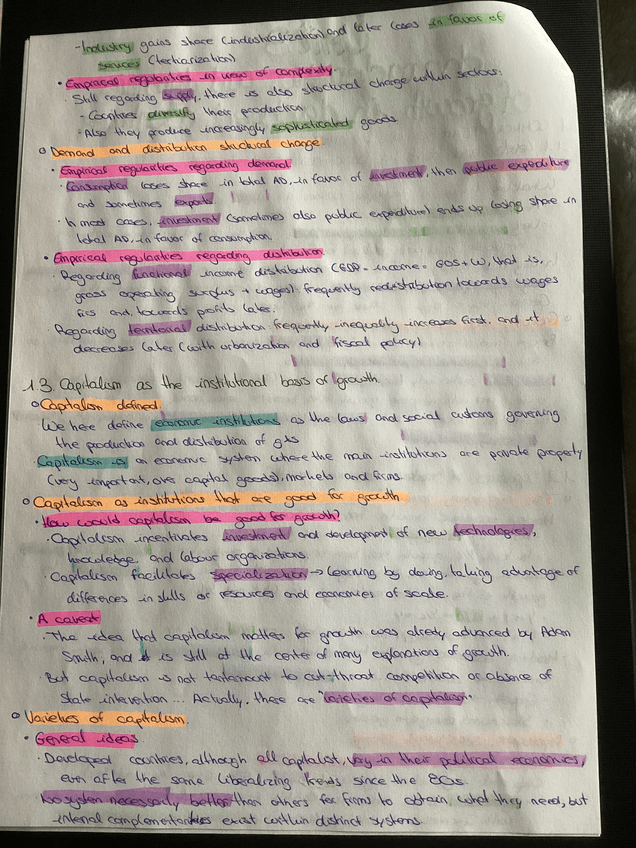 - Industry gains share (industrialization) and later loses in favor of
services (terciarization)
• Empirical regularities in view of complexity
· Still regarding supply, there is also structural change within sectors:
- Countries diversify their production
- Also they produce increasingly sophisticated goods
o Demand and distribution structural change
• Empirical regularities regarding demand
· Consumption loses share in total AD, in favor of investment, then public expenditure
and sometimes exports
· In most cases, investment (sometimes also public expenditure) ends up losing share in
total AD, in favor of consumption.
• Empirical regularities regarding distribution
· Regarding functional income distribution (GDP = income = GOS + W, that is,
gross operating surplus + wages): frequently redistribution towards wages
firs and, towards profits later.
Regarding territorial distribution: frequently inequality increases first, and it
decreases later (with urbanization and fiscal policy)
1.3 Capitalism as the institutional basis of growth
o Capitalism defined
We here define economic institutions as the laws and social customs governing
the production and distribution of g&s
Capitalism is an economic system where the main institutions are private property
(very important, over capital goods), markets and firms
o Capitalism as institutions that are good for growth
• How would capitalism be good for growth?
· Capitalism incentivates investment and development of new technologies,
knowledge, and labour organizations.
· Capitalism facilitates specialization → learning by doing, taking advantage of
differences in skills or resources and economies of scale.
• A caveat
· The idea that capitalism matters for growth was already advanced by Adam
Smith, and is still at the center of many explanations of growth.
· But capitalism is not tantamount to cut-throat competition or absence of
state intervention... Actually, there are "varieties of capitalism"
o Varieties of capitalism
• General ideas
· Developed countries, although all capitalist, vary in their political economies,
even after the same liberalizing trends since the 80s
No system necessarily better than others for firms to obtain what they need, but
internal complementarities exist within distinct systems